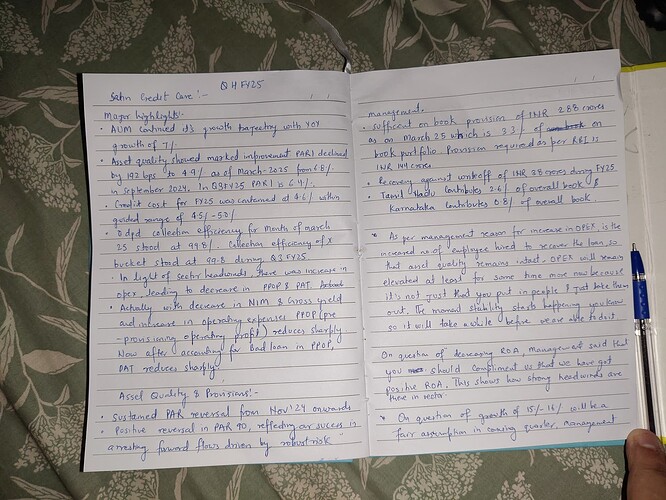 Q4 FY25
Satin Credit Care :-
Major highlights-
• AUM continued its growth trajectory with YOY
growth of 7%.
• Asset quality showed marked improvement PAR1 declined
by 192 bps to 4.9% as of March-2025 from 6.8%
in September 2024. In Q3FY25 PAR1 is 6.4%.
• Credit cost for FY25 was contained at 4.6% within
guided range of 4.5% - 5.0%
• 0 dpd collection efficiency for Month of march
25 stood at 99.8%. Collection efficiency of X
bucket stood at 99.8 during Q3 FY25
• In light of sector headwinds, there was increase in
opex leading to decrease in PPOP & PAT.
• Actually with decrease in NIM & Gross yield
and increase in operating expenses PPOP (pre
-provisioning operating profit) reduces sharply
Now after accounting for bad loan in PPOP,
PAT reduces sharply.
Asset Quality & Provisions:-
• Sustained PAR reversal from Nov'24 onwards
• Positive reversal in PAR 90, reflecting our success in
arresting forward flows driven by robust risk
management.
• Sufficient on book provision of INR 288 crores
as on March 25 which is 3.3% of on
book portfolio. Provision required as per RBI is
INR 144 crores
• Recovery against writeoff of INR 38 crores during FY25
• Tamil Nadu contributes 2.6% of overall book &
Karnataka contributes 0.8% of overall book.
* As per management reason for increase in OPEX, is the
increased no of employee hired to recover the loan, so
that asset quality remains intact. OPEX will remain
elevated at least for some time more now because
it's not just that you put in people & just take them
out. The moment stability starts happening you know
so it will take a while before we are able to do it
On question of decreasing ROA, Management said that
you should compliment us that we have got
positive ROA. This shows how strong headwinds are
there in sector.
* On question of growth of 15% - 16% will be a
fair assumption in coming quarter, management